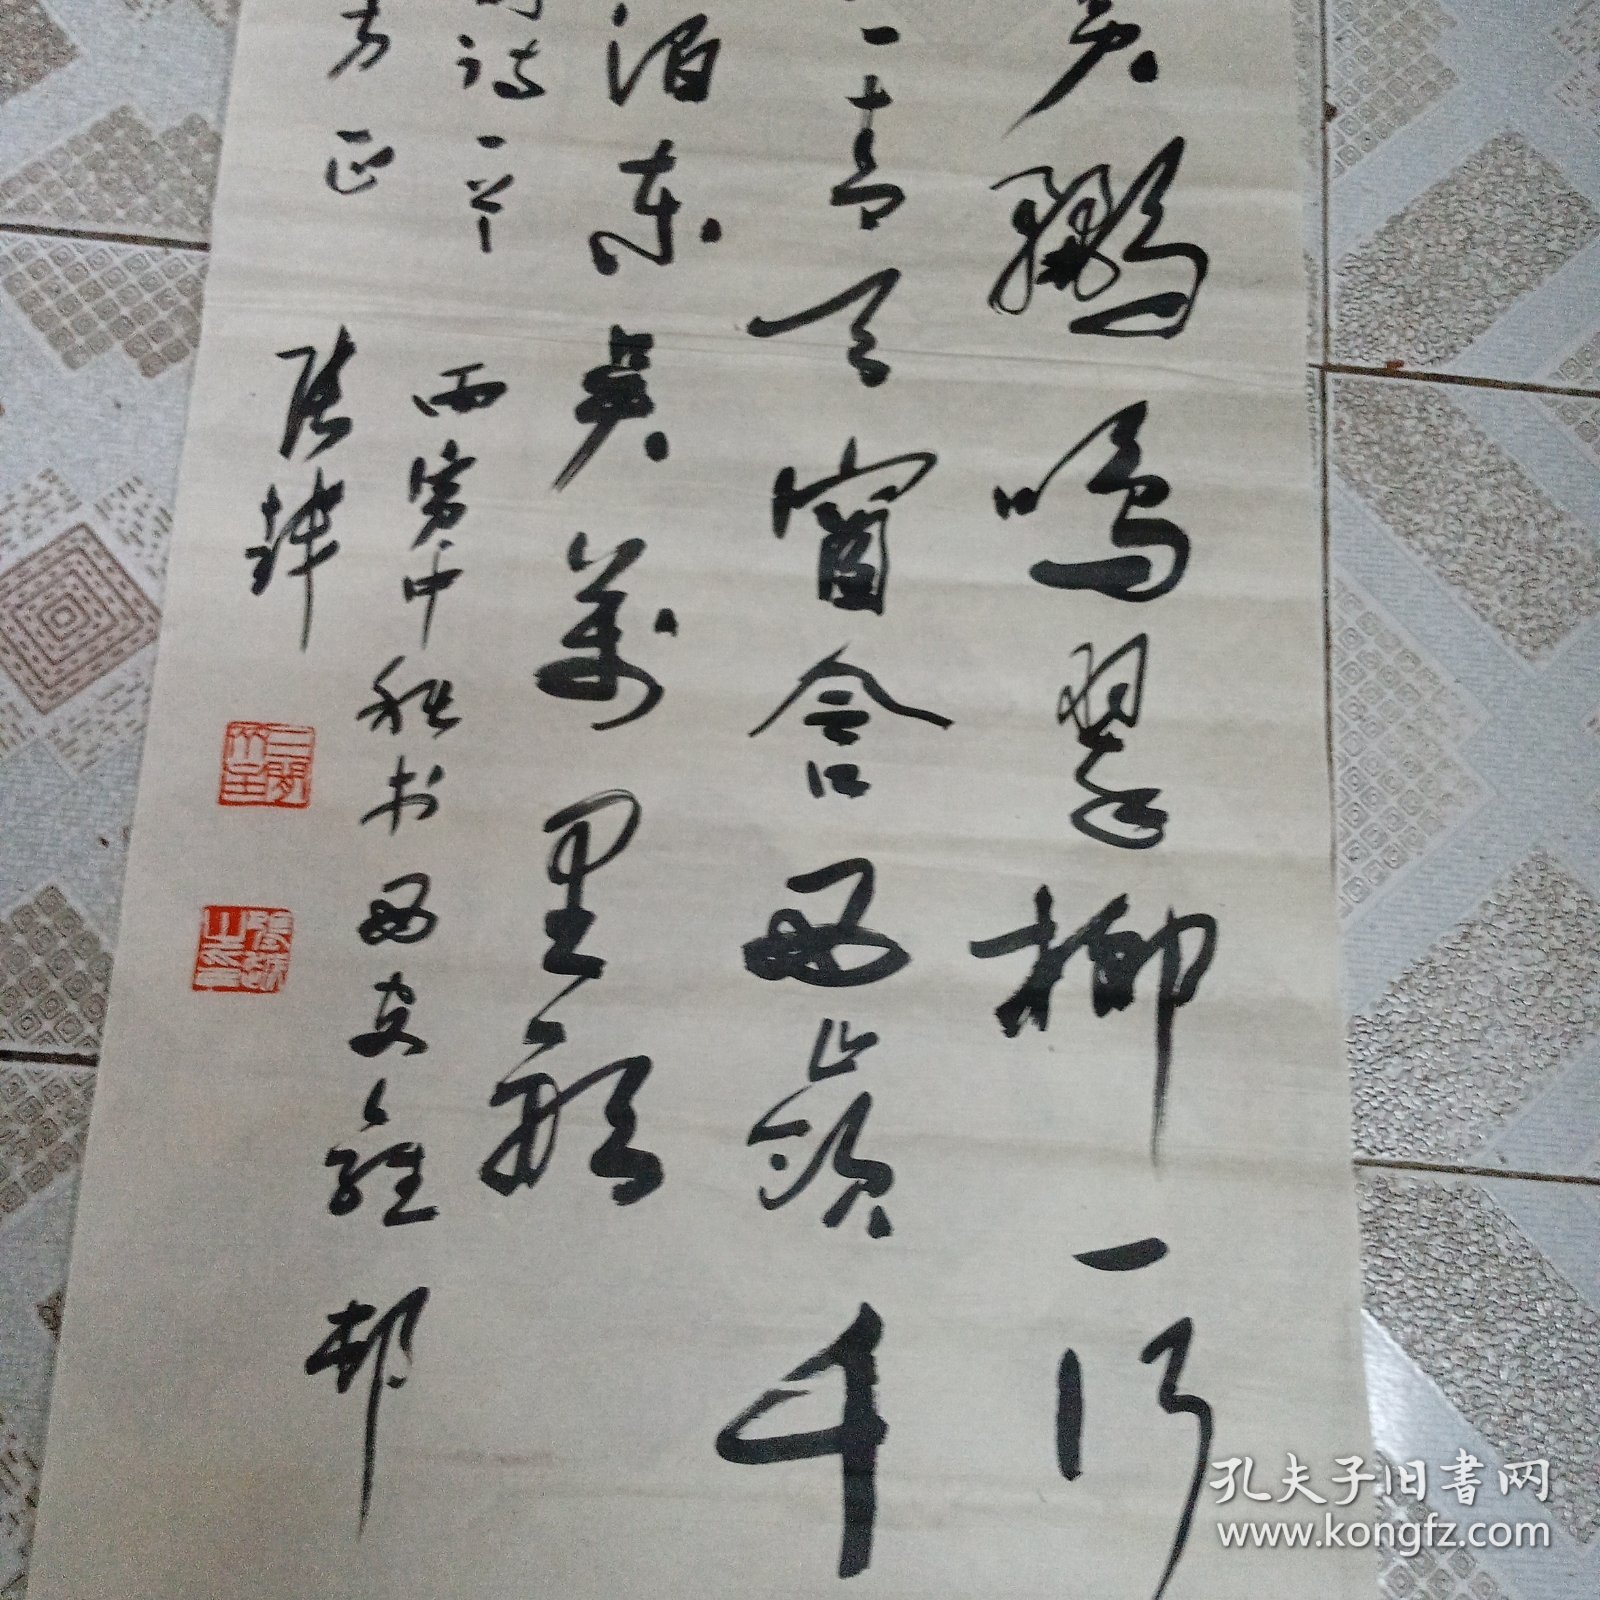 黄鹂鸣翠柳一行
上青天窗含西岭千
泊东吴万里船
诗一首
方正
丙寅中秋书西安雍村
陈
孔夫子旧书网
www.kongfz.com